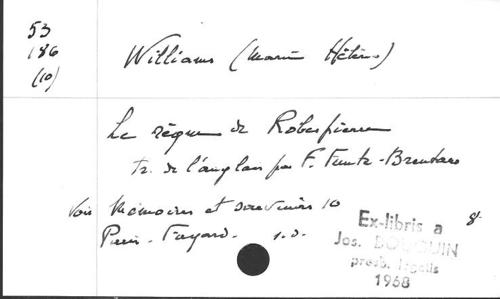 53
186
(10)
Williams (Marie Hélène)
Le règne de Robespierre
tr. de l'anglais par F. Funtz-Brentano
Voir Mémoires et souvenirs 10
Paris-Fayard. s.d. 8-
Ex-libris a
Jos. BOUQUIN
presb.
1968